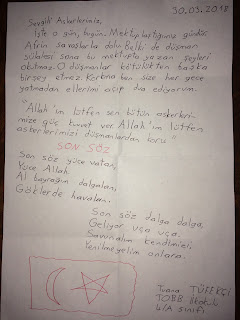 30.03.2018
Sevgili Askerlerimiz,
İşte o gün, bugün. Mektuplaştığımız gündür.
Afrin savaşlarla dolu. Belki de düşman
sülalesi sana bu mektupta yazan şeyleri
okutmaz. O düşmanlar kötülükten başka
birşey etmez. Korkma ben size her gece
yatmadan ellerimi açıp dua ediyorum.
"Allah'ım lütfen sen bütün askerleri-
mize güç kuvvet ver Allah'ım lütfen
askerlerimizi düşmanlardan koru"
SON SÖZ
Son söz yüce vatan,
Yüce Allah
Al bayrağım dalgalan,
Göklerde havalan.
Son söz dalga dalga,
Geliyor uça uça.
Savunalım kendimizi
Yenilmeyelim onlara.
Tuana TÜFEKÇİ
TOBB İlkokulu
4/A sınıfı